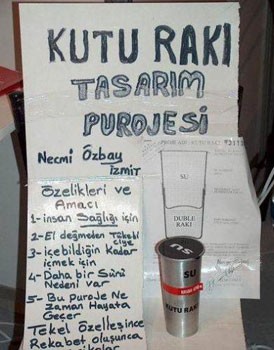 KUTU RAKI
TASARIM
PUROJESİ
Necmi Özbay
İZMİT
Özelikleri ve
Amacı
1- insan Sağlığı için
2- El değmeden Tüketi
ciye
3- içebildiğin Kadar
içmek için
4- Daha bir Sürü
Nedeni var
5- Bu Puroje Ne
Zaman Hayata
Geçer
Tekel Özelleşince
Rekabet oluşunca
SU
DUBLE
RAKI
SU
SU
KUTU RAKI